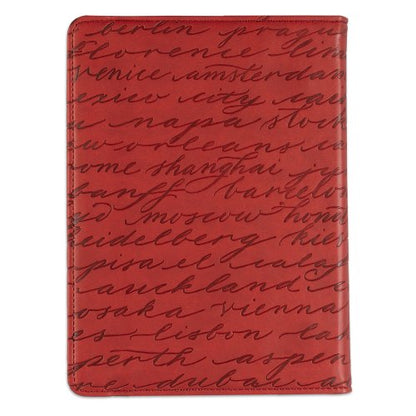 berlin pragu
florence lim
venice amsterdam
exico city
napa stock
w orleans ca
ome shanghai ju
banff barcelon
moscow hon
heidelberg kiev
pisa el cala
auckland
osaka vienna
es lisbon la
perth aspen
re dubai a